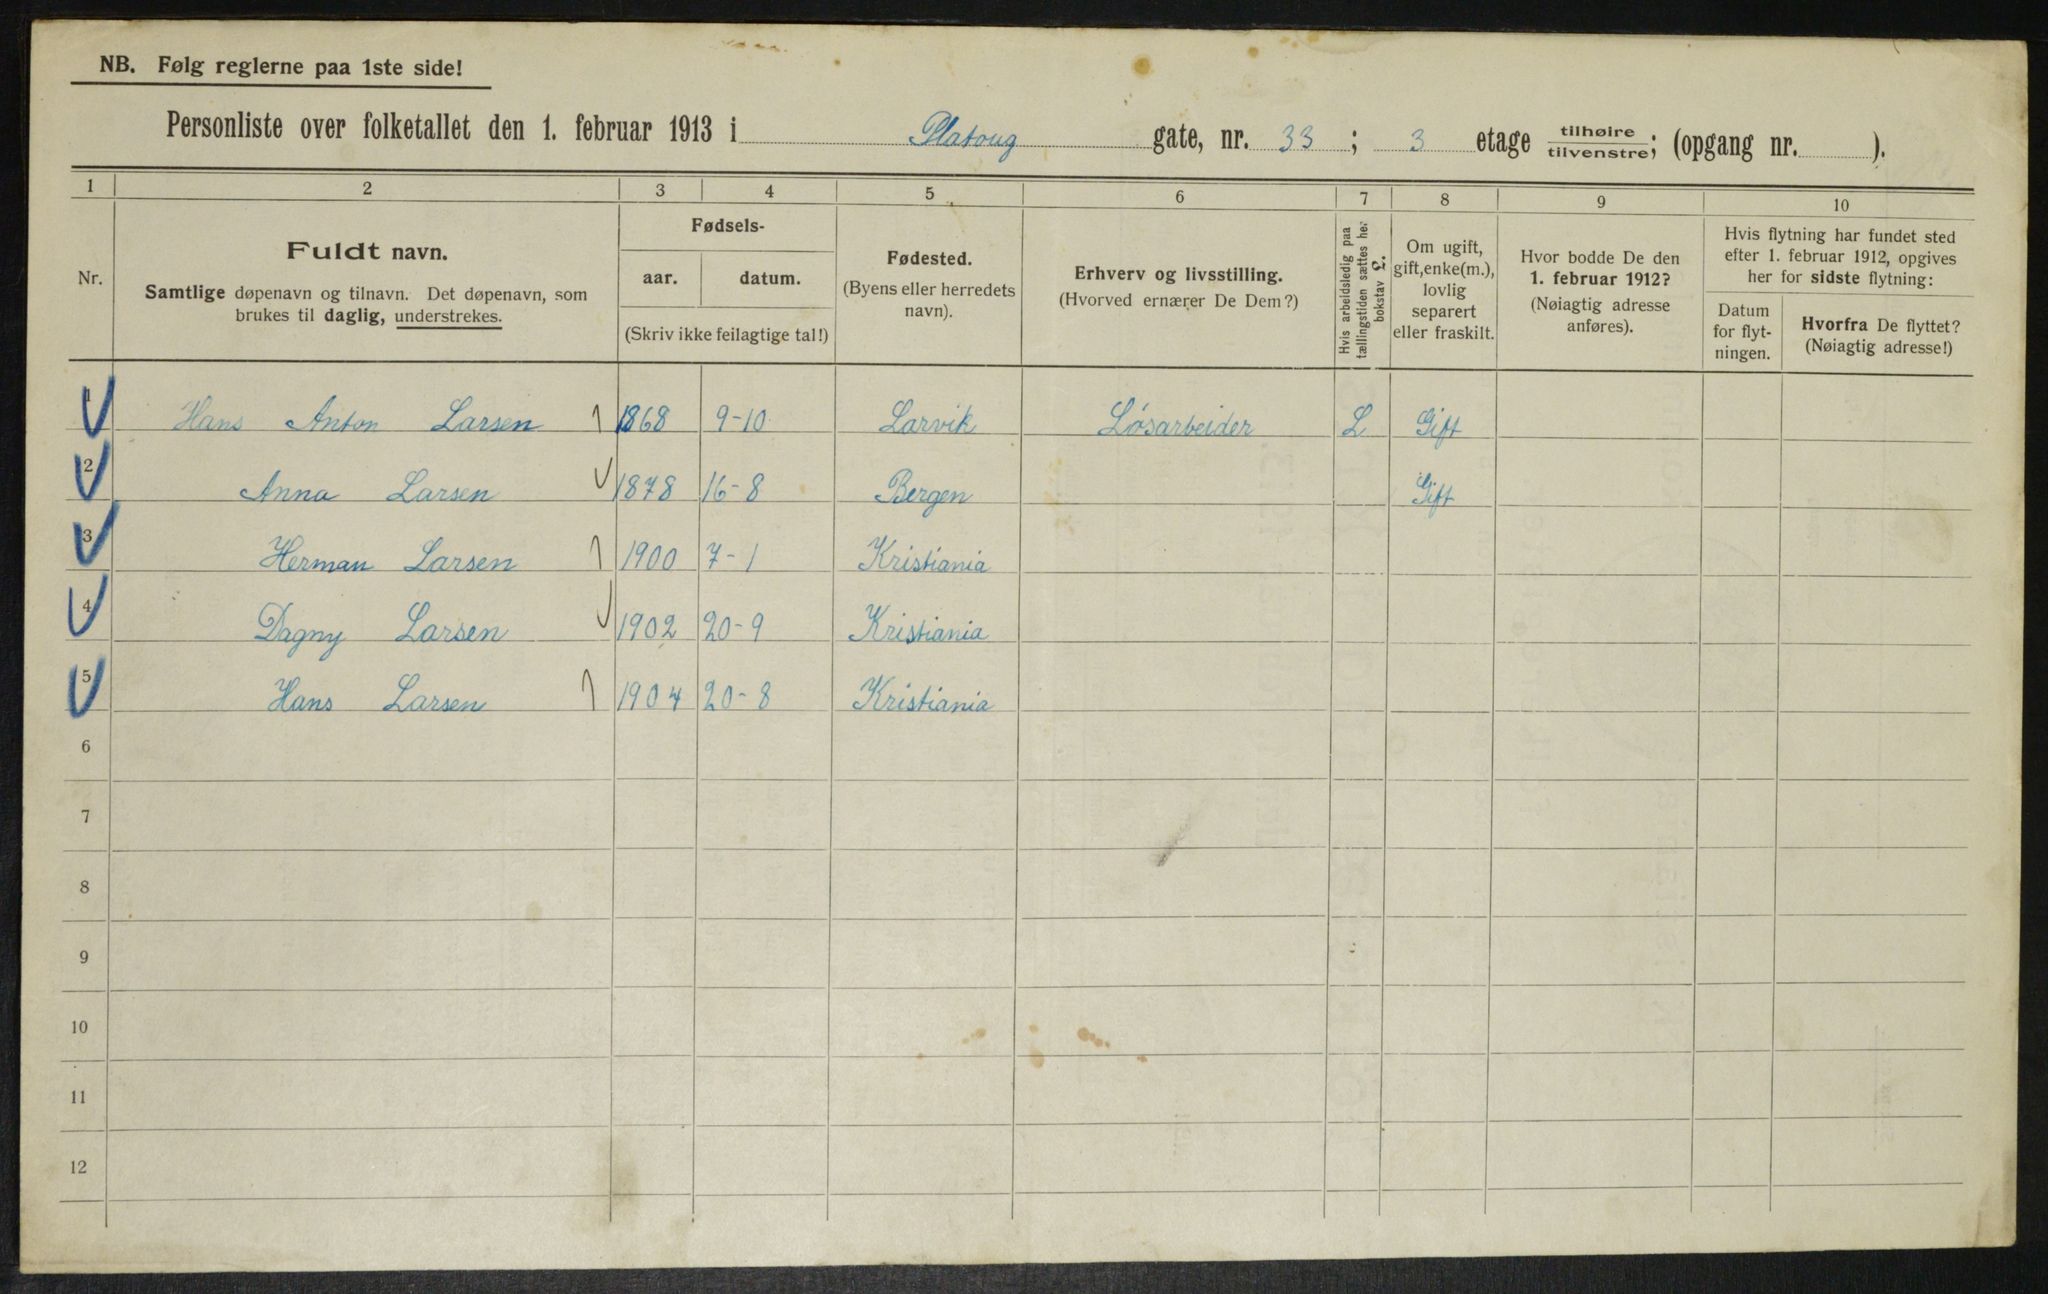 NB. Følg reglerne paa 1ste side!
Personliste over folketallet den 1. februar 1913 i Platoug gate, nr. 33; 3 etage tilhøire/tilvenstre; (opgang nr. ).
1 2 3 4 5 6 7 8 9 10
Nr.
Fuldt navn.
Samtlige døpenavn og tilnavn. Det døpenavn, som
brukes til daglig, understrekes.
Fødsels-
aar. datum.
(Skriv ikke feilagtige tal!)
Fødested.
(Byens eller herredets
navn).
Erhverv og livsstilling.
(Hvorved ernærer De Dem?)
Hvis arbeidsledig paa
tællingstiden sættes her
bokstav L.
Om ugift,
gift, enke(m.),
lovlig
separert
eller fraskilt.
Hvor bodde De den
1. februar 1912?
(Nøiagtig adresse
anføres).
Hvis flytning har fundet sted
efter 1. februar 1912, opgives
her for sidste flytning:
Datum
for flyt-
ningen.
Hvorfra De flyttet?
(Nøiagtig adresse!)
1 Hans Anton Larsen 1868 9-10 Larvik Løsarbeider L Gift
2 Anna Larsen 1878 16-8 Bergen Gift
3 Herman Larsen 1900 7-1 Kristiania
4 Dagny Larsen 1902 20-9 Kristiania
5 Hans Larsen 1904 20-8 Kristiania
6
7
8
9
10
11
12